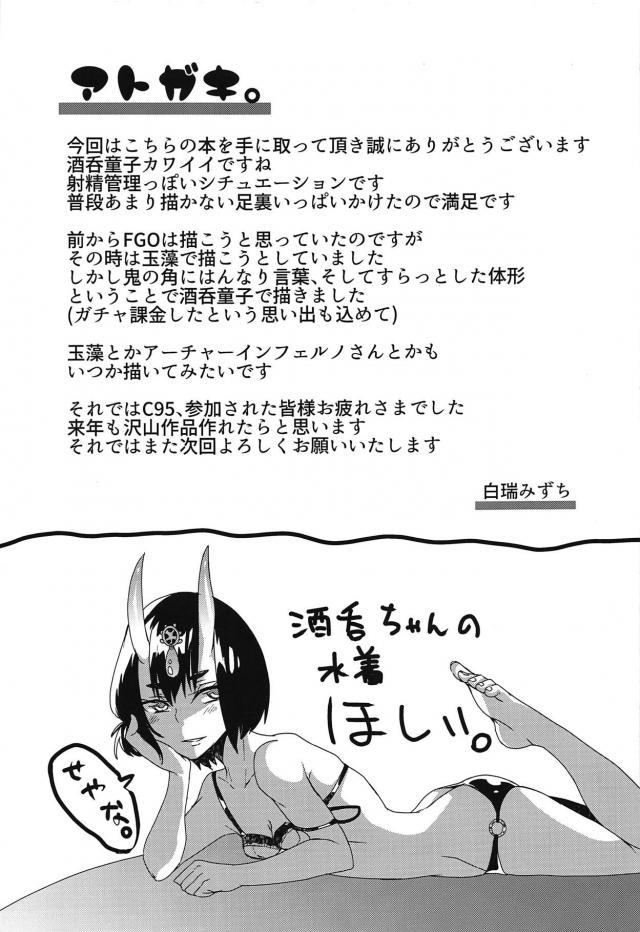 アトガキ。
今回はこちらの本を手に取って頂き誠にありがとうございます
酒呑童子カワイイですね
射精管理っぽいシチュエーションです
普段あまり描かない足裏いっぱいかけたので満足です
前からFGOは描こうと思っていたのですが
その時は玉藻で描こうとしていました
しかし鬼の角にはんなり言葉、そしてすらっとした体形
ということで酒呑童子で描きました
(ガチャ課金したという思い出も込めて)
玉藻とかアーチャーインフェルノさんとかも
いつか描いてみたいです
それではC95、参加された皆様お疲れさまでした
来年も沢山作品作れたらと思います
それではまた次回よろしくお願いいたします
白瑞みずち
酒呑ちゃんの
水着
ほしい。
せやな。